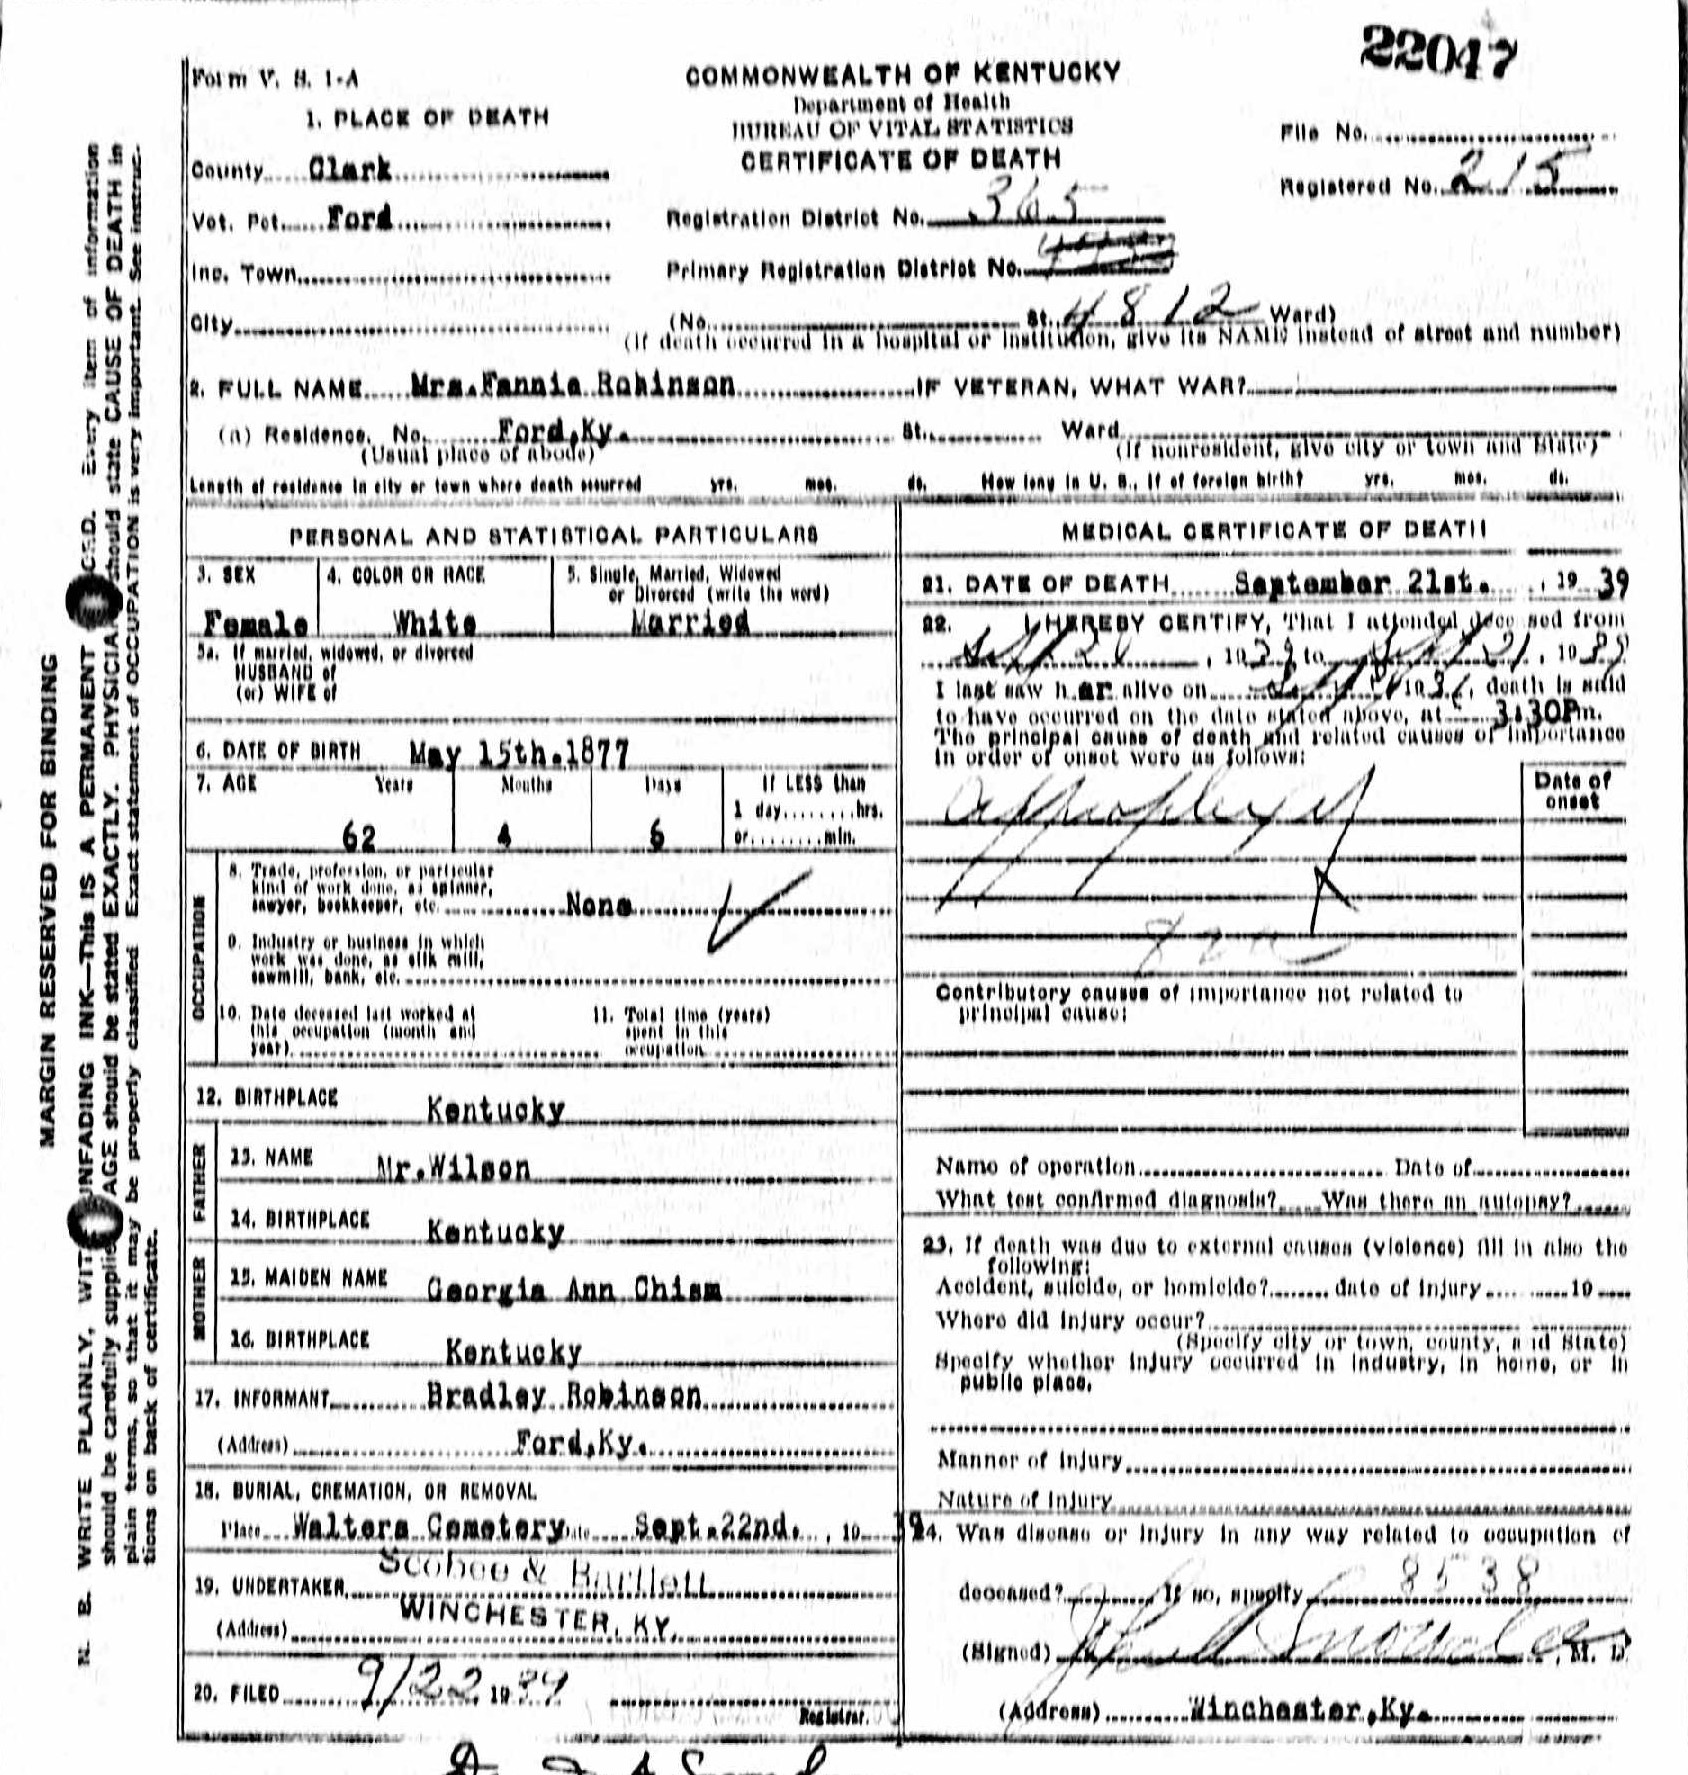 22047
Form V. S. 1-A
COMMONWEALTH OF KENTUCKY
Department of Health
BUREAU OF VITAL STATISTICS
CERTIFICATE OF DEATH
File No.
Registered No. 215
1. PLACE OF DEATH
County Clark
Vot. Pct. Ford
Inc. Town
City
Registration District No. 365
Primary Registration District No.
(No. St. 4812 Ward)
(If death occurred in a hospital or institution, give its NAME instead of street and number)
2. FULL NAME Mrs.Fannie Robinson IF VETERAN, WHAT WAR?
(a) Residence. No. Ford,Ky. St. Ward
(Usual place of abode) (If nonresident, give city or town and State)
Length of residence in city or town where death occurred yrs. mos. ds. How long in U. S., if of foreign birth? yrs. mos. ds.
PERSONAL AND STATISTICAL PARTICULARS
3. SEX 4. COLOR OR RACE 5. Single, Married, Widowed
or Divorced (write the word)
Female White Married
5a. If married, widowed, or divorced
HUSBAND of
(or) WIFE of
6. DATE OF BIRTH May 15th.1877
7. AGE Years Months Days If LESS than
1 day, hrs.
62 4 6 or min.
OCCUPATION
8. Trade, profession, or particular
kind of work done, as spinner,
sawyer, bookkeeper, etc. None
9. Industry or business in which
work was done, as silk mill,
sawmill, bank, etc.
10. Date deceased last worked at
this occupation (month and
year)
11. Total time (years)
spent in this
occupation
12. BIRTHPLACE Kentucky
FATHER
13. NAME Mr.Wilson
14. BIRTHPLACE Kentucky
MOTHER
15. MAIDEN NAME Georgia Ann Chism
16. BIRTHPLACE Kentucky
17. INFORMANT Bradley Robinson
(Address) Ford,Ky.
18. BURIAL, CREMATION, OR REMOVAL
Place Walters Cemetery Date Sept.22nd. , 19 39
19. UNDERTAKER Scobee & Bartlett
(Address) WINCHESTER, KY.
20. FILED 9/22, 1939
Registrar.
MEDICAL CERTIFICATE OF DEATH
21. DATE OF DEATH September 21st. , 19 39
22. I HEREBY CERTIFY, That I attended deceased from
, 1939 to Sept 21, 1939
I last saw h er alive on 193 , death is said
to have occurred on the date stated above, at 3:30Pm.
The principal cause of death and related causes of importance
in order of onset were as follows:
Date of
onset
Appoplexy
Contributory causes of importance not related to
principal cause:
Name of operation Date of
What test confirmed diagnosis? Was there an autopsy?
23. If death was due to external causes (violence) fill in also the
following:
Accident, suicide, or homicide? date of injury 19
Where did injury occur?
(Specify city or town, county, and State)
Specify whether injury occurred in industry, in home, or in
public place.
Manner of injury
Nature of injury
24. Was disease or injury in any way related to occupation of
deceased? If so, specify 8538
(Signed) M. D.
(Address) Winchester,Ky.
MARGIN RESERVED FOR BINDING
N. B. WRITE PLAINLY, WITH UNFADING INK—This IS A PERMANENT Every item of information
should be carefully supplied AGE should be stated EXACTLY. PHYSICIAN should state CAUSE OF DEATH in
plain terms, so that it may be properly classified Exact statement of OCCUPATION is very important. See instruc-
tions on back of certificate.